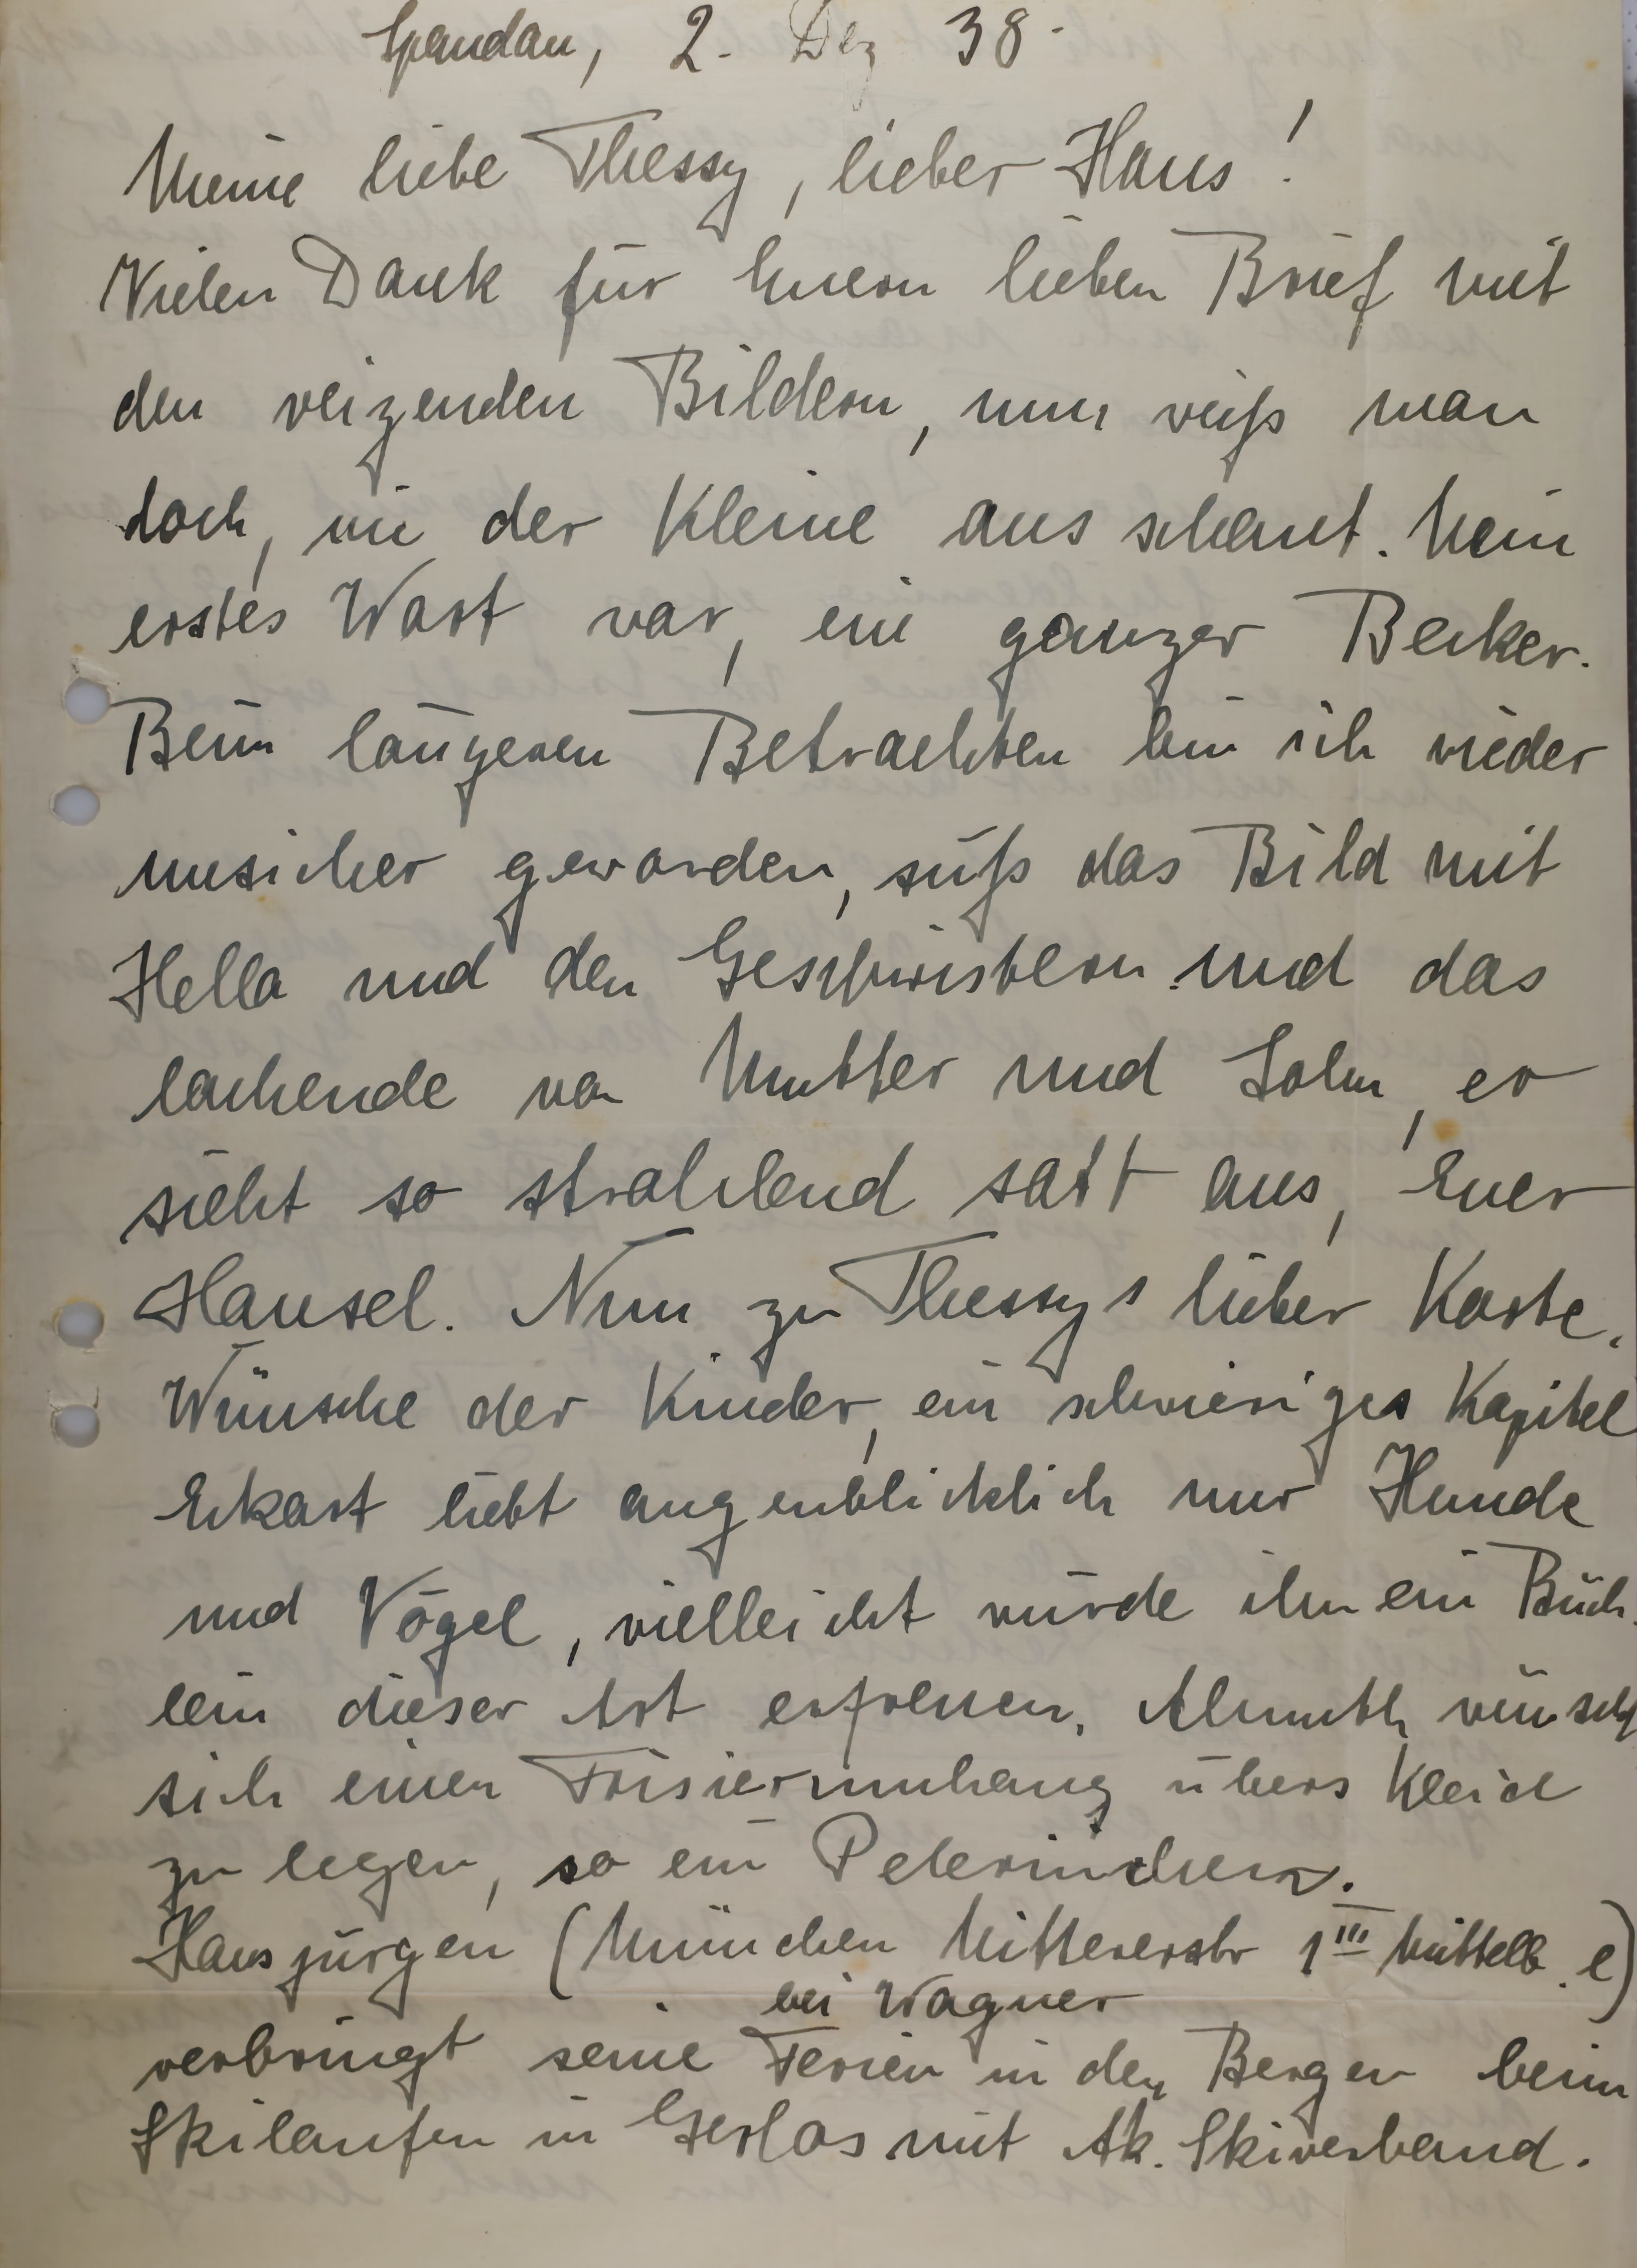 Spandau, 2. Dez 38.
Meine liebe Thessy, lieber Hans!
Vielen Dank für Euern lieben Brief mit
den reizenden Bildern, nun weiß man
doch, wie der Kleine aus schaut. Mein
erstes Wort war, ein ganzer Becker.
Beim längeren Betrachten bin ich wieder
unsicher geworden, süß das Bild mit
Hella und den Geschwistern und das
lachende von Mutter und Sohn, er
sieht so strahlend satt aus, Euer
Hansel. Nun zu Thessys lieber Karte.
Wünsche der Kinder, ein schwieriges Kapitel
Eckart liebt augenblicklich nur Hunde
und Vögel, vielleicht würde ihn ein Büch-
lein dieser Art erfreuen. Almuth wünscht
sich einen Frisierumhang übers Kleid
zu legen, so ein Pelerinchen.
Hansjürgen (München Mittererstr 1 III Mittelb. e)
bei Wagner
verbringt seine Ferien in den Bergen beim
Skilaufen in Gerlos mit Ak. Skiverband.